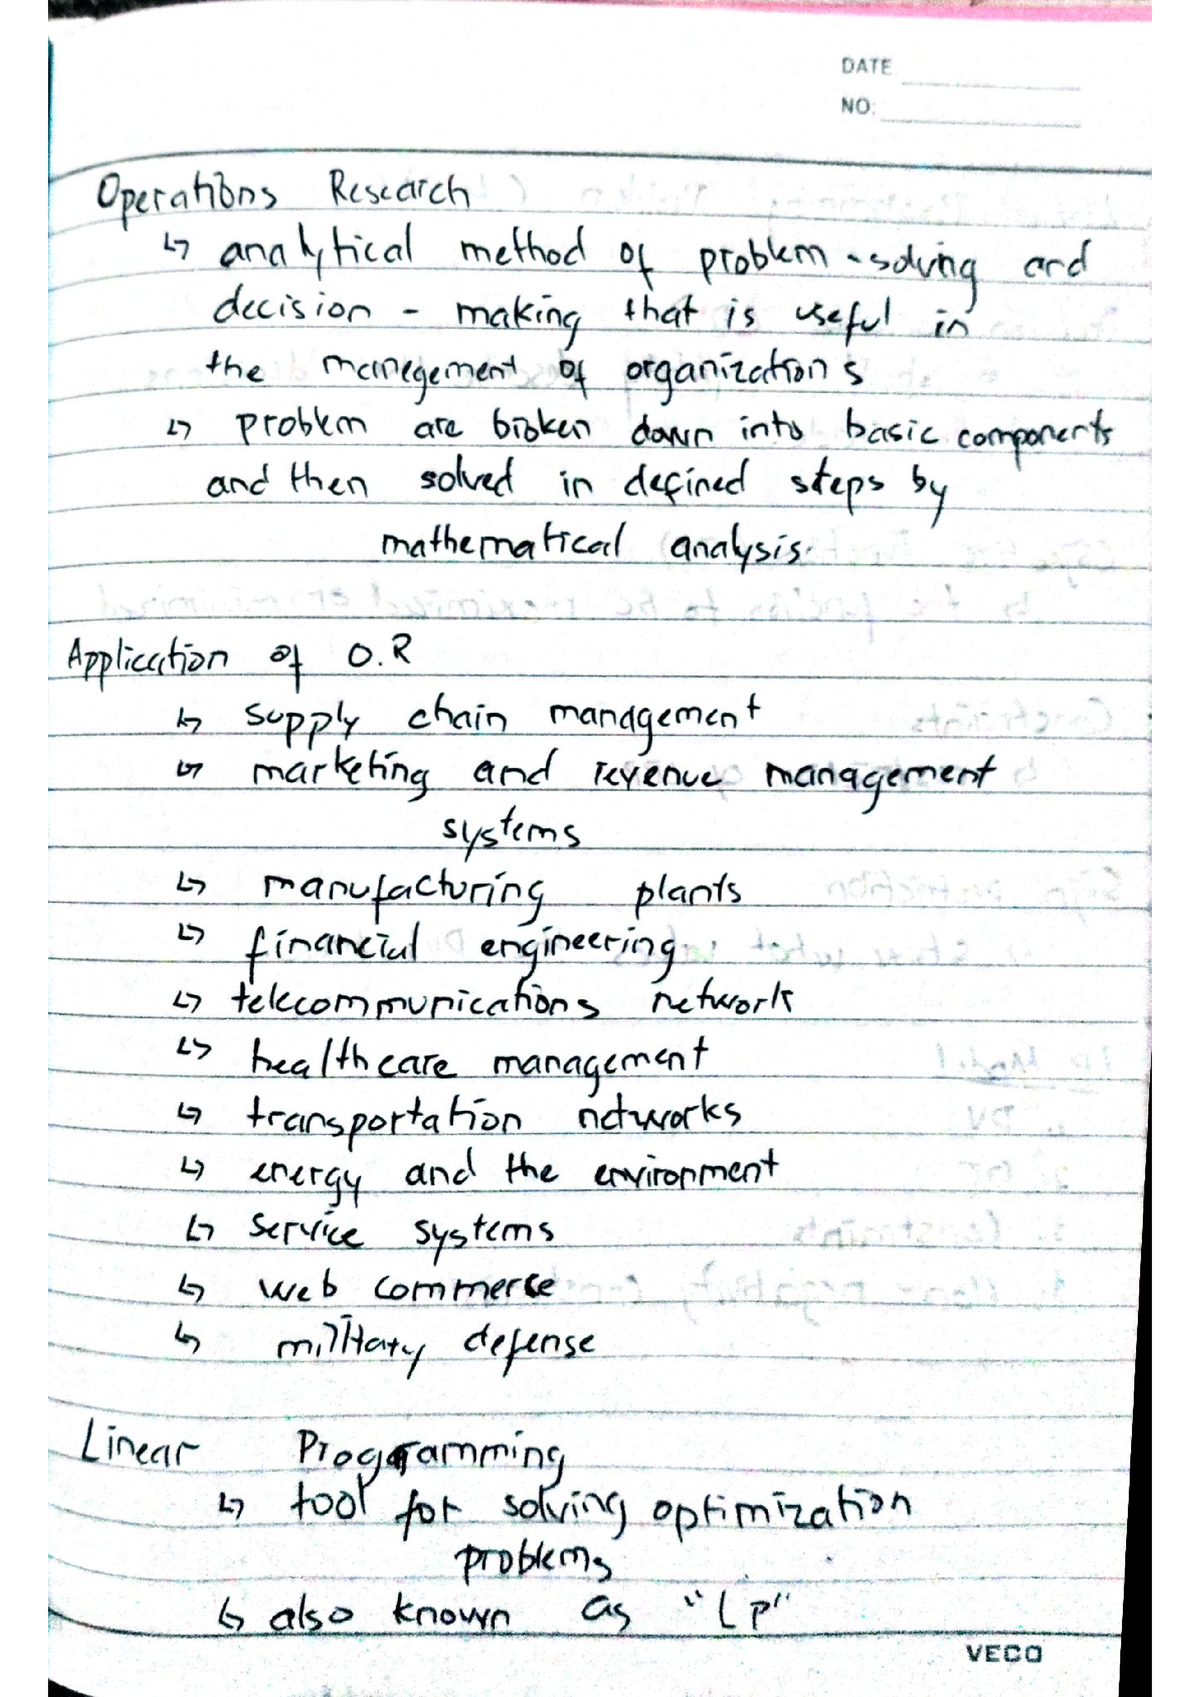 DATE
NO:
Operations Research
↳ analytical method of problem-solving and
decision-making that is useful in
the manegement of organizations
↳ problem are broken down into basic components
and then solved in defined steps by
mathematical analysis.
Application of O.R
↳ supply chain management
↳ marketing and revenue management
systems
↳ manufacturing plants
↳ financial engineering
↳ telecommunications network
↳ healthcare management
↳ transportation networks
↳ energy and the environment
↳ service systems
↳ web commerce
↳ military defense
Linear Programming
↳ tool for solving optimization
problems
↳ also known as "LP"
VECO